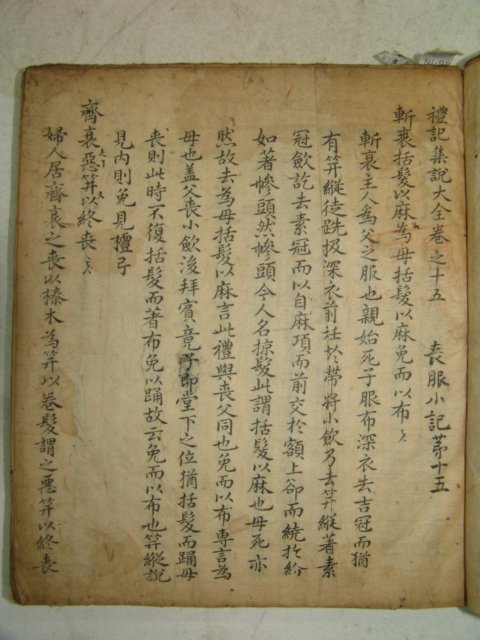 禮記集說大全卷之十五 喪服小記第十五
斬衰括髮以麻為母括髮以麻免而以布
斬衰主人為父之服也親始死子服布深衣去吉冠而猶
有笄縱徒跣扱深衣前衽於帶將小歛乃去笄縱著素
冠歛訖去素冠而以自麻項而前交於額上卻而繞於紒
如著幓頭然幓頭今人名掠髮此謂括髮以麻也母死亦
然故去為母括髮以麻言此禮與喪父同也免而以布專言為
母也盖父喪小歛後拜賓竟子即堂下之位猶括髮而踊母
喪則此時不復括髮而著布免以踊故云免而以布也笄縱說
見内則免見檀弓
齊衰惡笄以終喪
婦人居齊衰之喪以榛木為笄以卷髮謂之惡笄以終喪